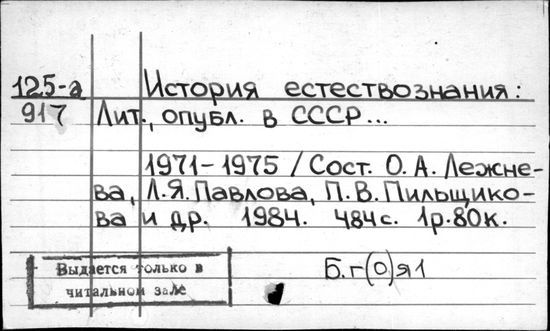 125-а История естествознания:
917 Лит., опубл. в СССР...
1971-1975 / Сост. О. А. Лежне-
ва, Л. Я. Павлова, П. В. Пильщико-
ва и др. 1984. 484 с. 1р. 80к.
Б. г(0)я1
Выдается только в
читальном зале